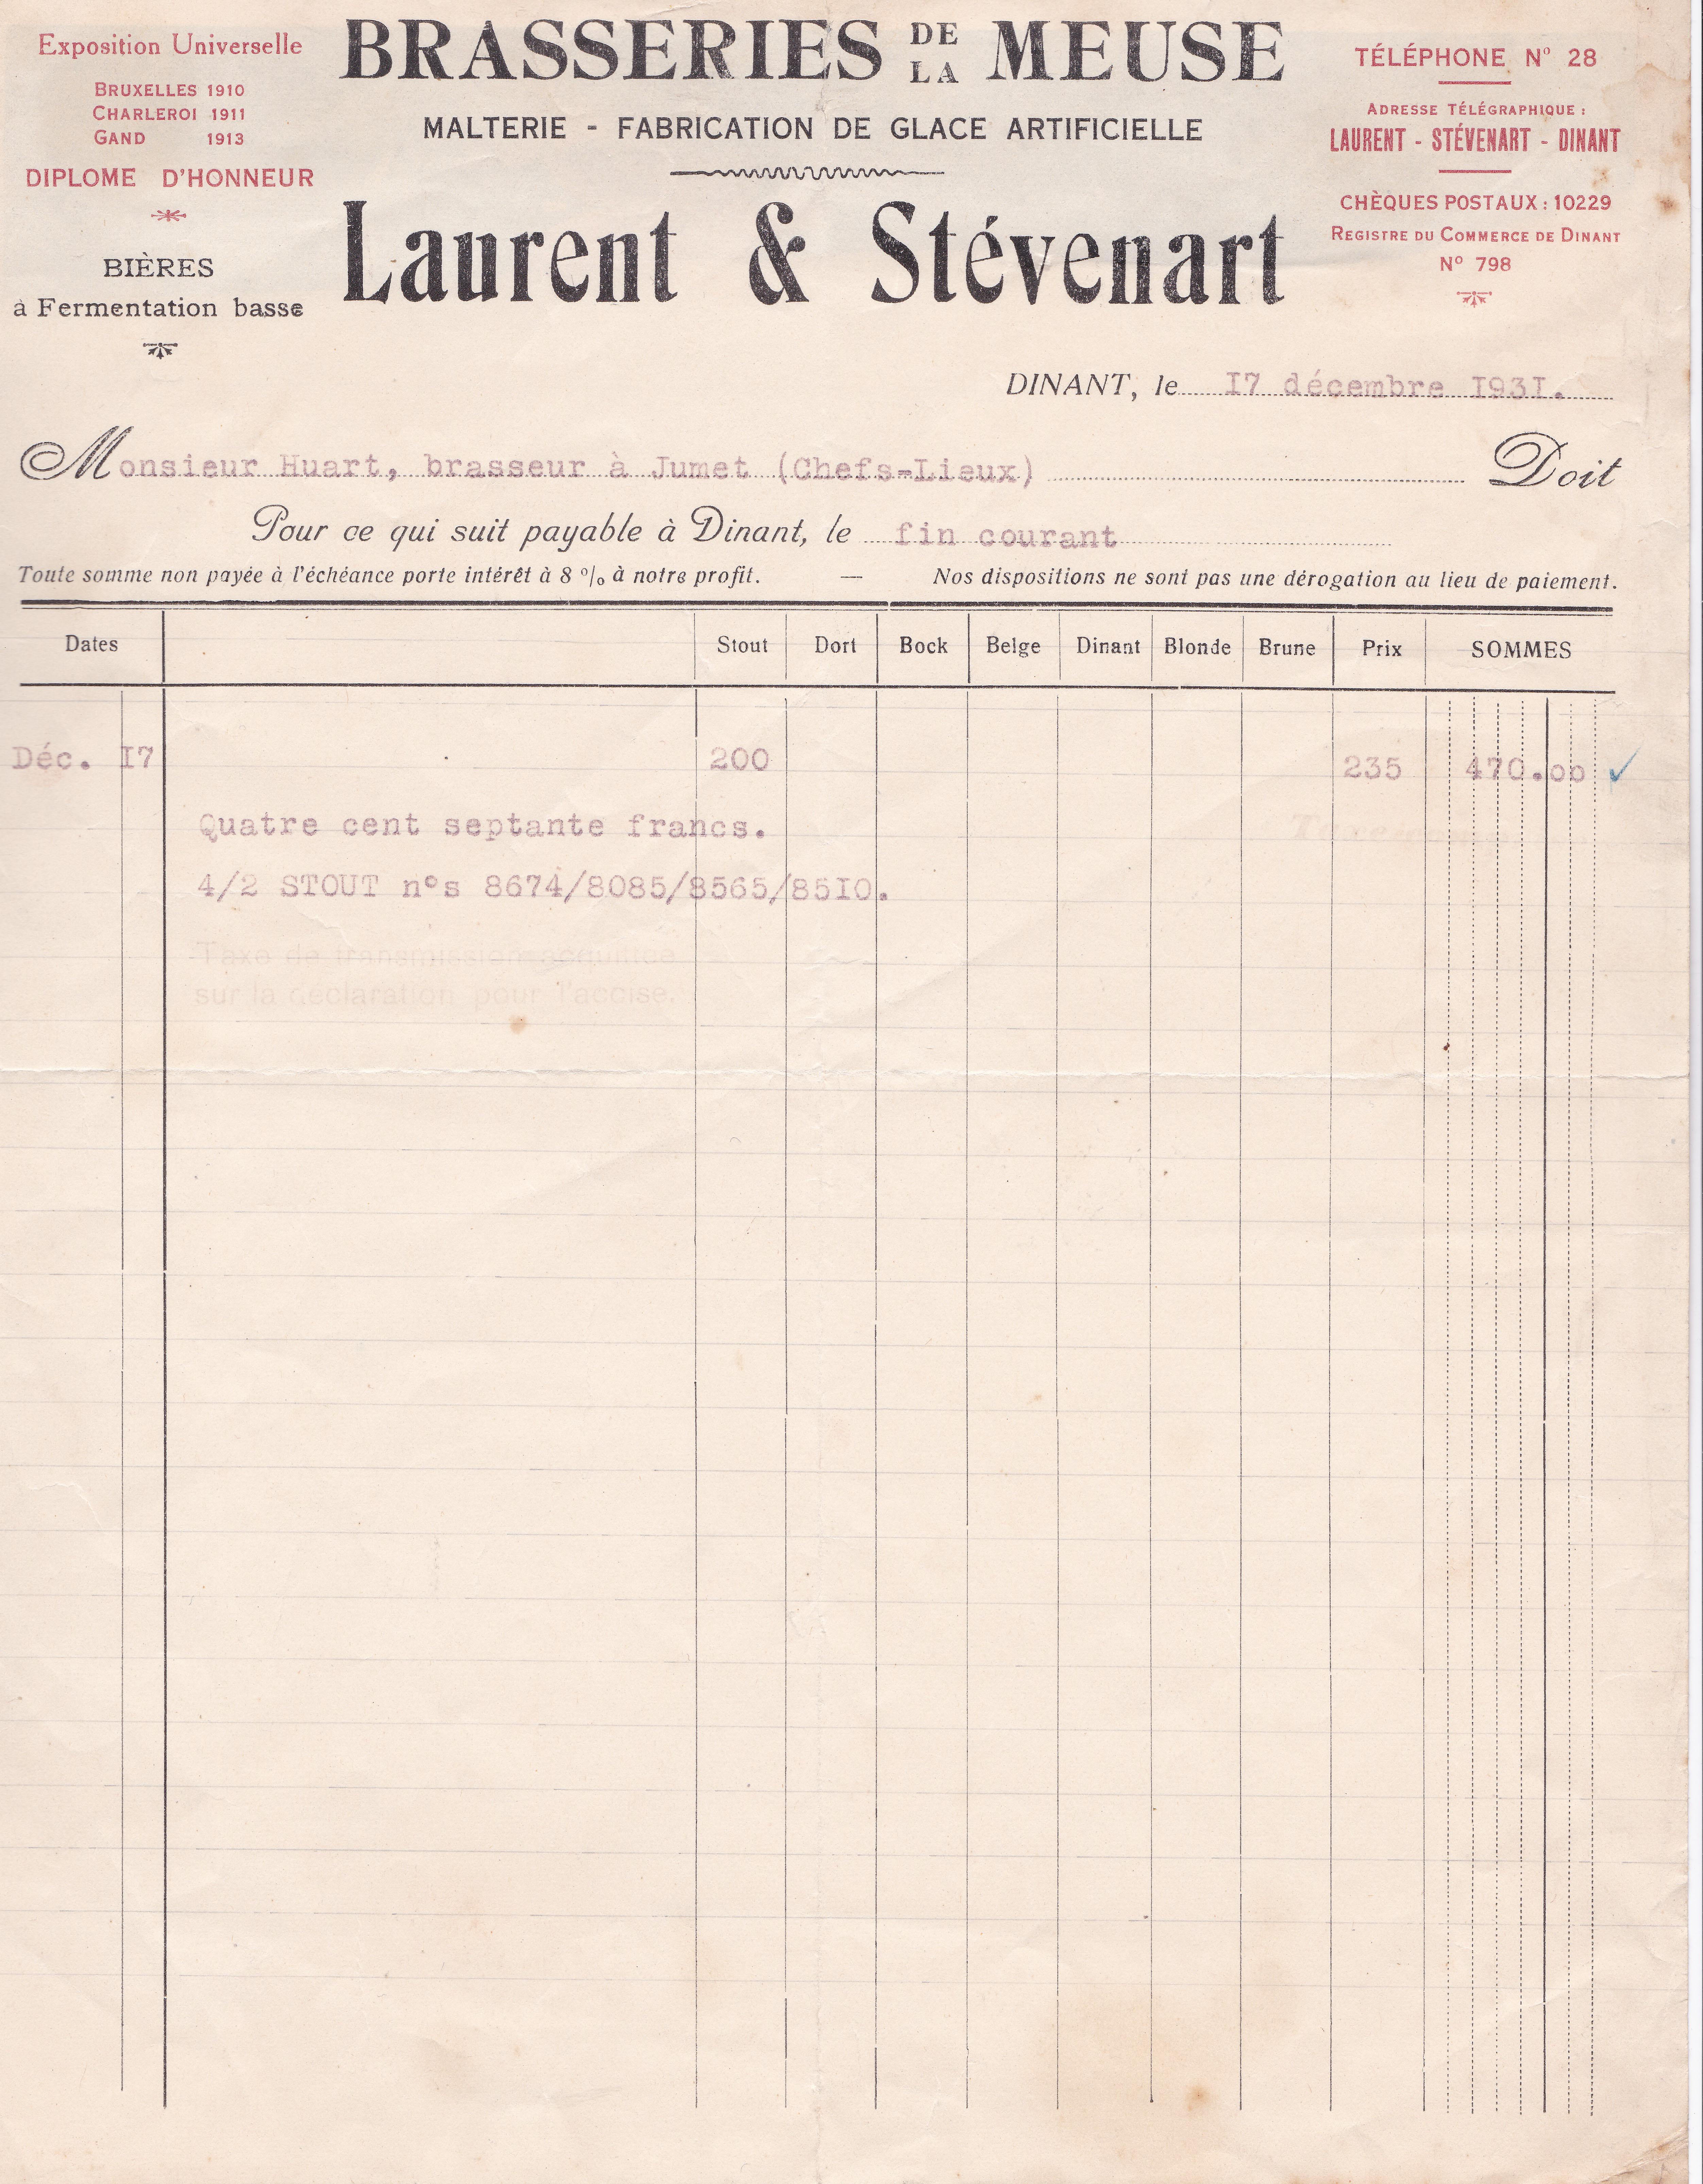 Exposition Universelle
BRUXELLES 1910
CHARLEROI 1911
GAND 1913
DIPLOME D'HONNEUR
BIÈRES
à Fermentation basse
BRASSERIES DE LA MEUSE
MALTERIE - FABRICATION DE GLACE ARTIFICIELLE
Laurent & Stévenart
TÉLÉPHONE Nº 28
ADRESSE TÉLÉGRAPHIQUE :
LAURENT - STÉVENART - DINANT
CHÈQUES POSTAUX : 10229
REGISTRE DU COMMERCE DE DINANT
Nº 798
DINANT, le 17 décembre 1931.
Monsieur Huart, brasseur à Jumet (Chefs-Lieux) Doit
Pour ce qui suit payable à Dinant, le fin courant
Toute somme non payée à l'échéance porte intérêt à 8 % à notre profit. — Nos dispositions ne sont pas une dérogation au lieu de paiement.
Dates Stout Dort Bock Belge Dinant Blonde Brune Prix SOMMES
Déc. 17 200 235 470.00 ✓
Quatre cent septante francs.
4/2 STOUT nºs 8674/8085/8565/8510.
Taxe de transmission acquittée
sur la déclaration pour l'accise.